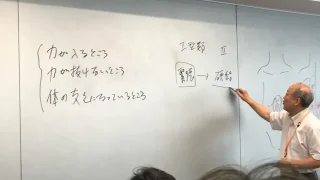 力が入るところ
力が抜けないところ
体の支えになっているところ
II
→ 硬結